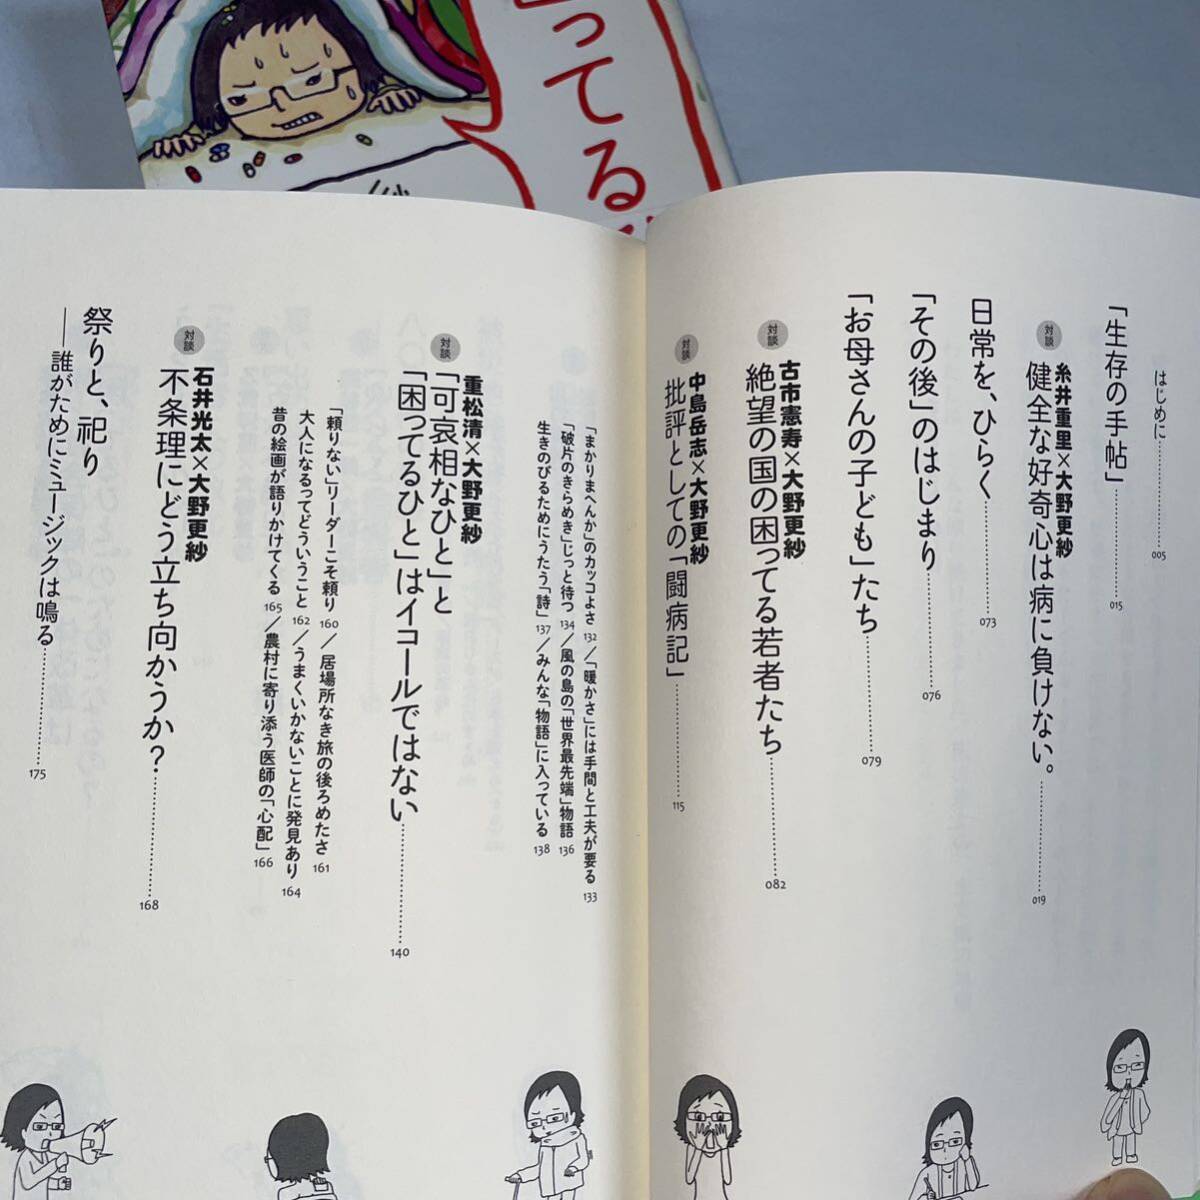 ってる
はじめに 005
「生存の手帖」 015
対談
糸井重里×大野更紗
健全な好奇心は病に負けない。 019
日常を、ひらく 073
「その後」のはじまり 076
「お母さんの子ども」たち 079
対談
古市憲寿×大野更紗
絶望の国の困ってる若者たち 082
対談
中島岳志×大野更紗
批評としての「闘病記」 115
「まかりまへんか」のカッコよさ 132／「暖かさ」には手間と工夫が要る 133
「破片のきらめき」じっと待つ 134／風の島の「世界最先端」物語 136
生きのびるためにうたう「詩」 137／みんな「物語」に入っている 138
対談
重松清×大野更紗
「可哀相なひと」と
「困ってるひと」はイコールではない 140
「頼りない」リーダーこそ頼り 160／居場所なき旅の後ろめたさ 161
大人になるってどういうこと 162／うまくいかないことに発見あり 164
昔の絵画が語りかけてくる 165／農村に寄り添う医師の「心配」 166
対談
石井光太×大野更紗
不条理にどう立ち向かうか？ 168
祭りと、祀り
――誰がためにミュージックは鳴る 175